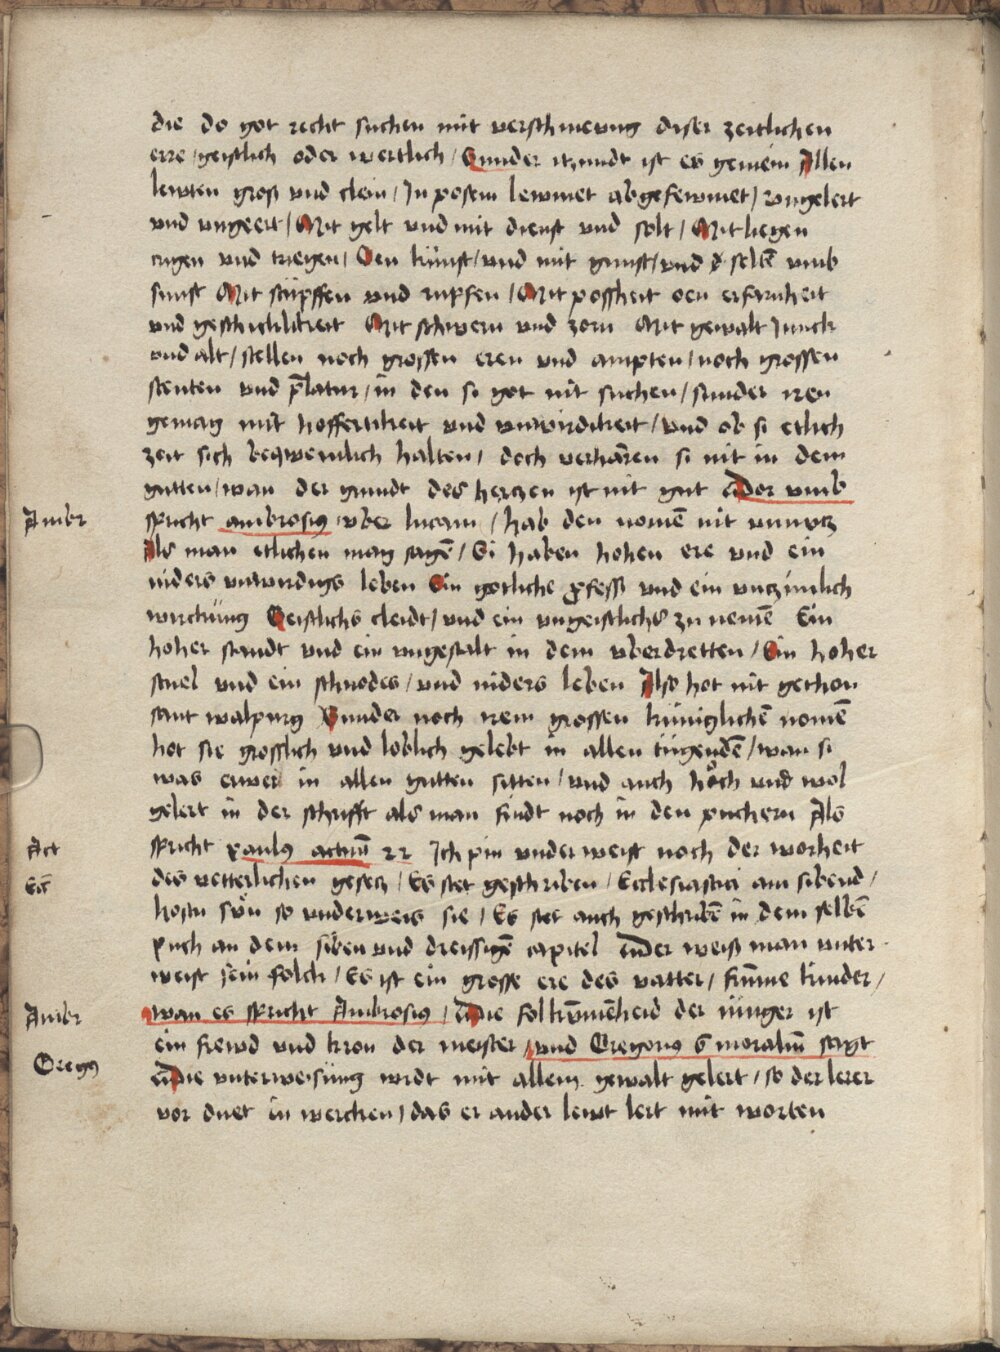 die do got recht suchen mit verschmevng diser zeitlichen
erre / geistlich oder wertlich / Sunder itzundt ist es gemein Allen
lewten gross vnd clein / Jn posem lewmet abgefewmet / vngelert
vnd vngeert / Mit gelt vnd mit dienst vnd solt / Mit liegen
vnd triegen / Den kunst / vnd mit gunst / vnd d selbē vmb
sunst Mit stupffen vnd rupfen / Mit possheit oen erfarnheit
vnd geschicklikeit Mit schwern vnd zorn Mit gewalt Junck
vnd alt / stellen noch grossen eren vnd ampten / noch grossen
stenten vnd p̄latur / in den si got nit suchen / sunder iren
gemag mit hoffertikeit vnd vnwirdikeit / vnd ob si etlich
zeit sich beqwemlich halten / doch verharen si nit in dem
gutten / wan der grundt des hertzen ist nit gut Dor vmb
Ambr
spricht ambrosius vber lucam / hab den nomē nit vnnutz
Als man etlichen mag sagē / Si haben hohen ere vnd ein
niders vnwirdigs leben Ein gotliche ꝓfess vnd ein vnczimlich
wirckung Geistlichs cleidt / vnd ein vngeistlichs zu nemē Ein
hoher standt vnd ein vngestalt in dem vberdretten / Ein hoher
stuel vnd ein schnodes / vnd niders leben Also hot nit gethon
sant walpurg Sunder noch irem grossen kuniglichē nomē
hot sie grosslich vnd loblich gelebt in allen tugendē / wan si
was erwer in allen gutten sitten / vnd auch hoch vnd wol
gelert in der schrifft als man findt noch in den puchern Als
Act
spricht paulus actuū 22 Ich pin vnderweist noch der worheit
Ec̄
des vetterlichen gesecz / Es stet geschriben / Ecclesiastici am sibend /
hostu sön so vnderweis sie / Es stet auch geschribē in dem selbē
puch an dem siben vnd dreissigē capitel Ein weiss man vnter
weist sein folck / Es ist ein grosse ere des vatter / frūme kinder /
Ambr
wan es spricht Ambrosius / Die folkūmēheid der iunger ist
ein frewd vnd kron der meister / vnd Gregorius 6 moraliū sagt
Gregꝰ
Die vnterweisung wirdt mit allem gewalt gelert / so der lerer
vor duet in wercken / das er ander lewt lert mit worten